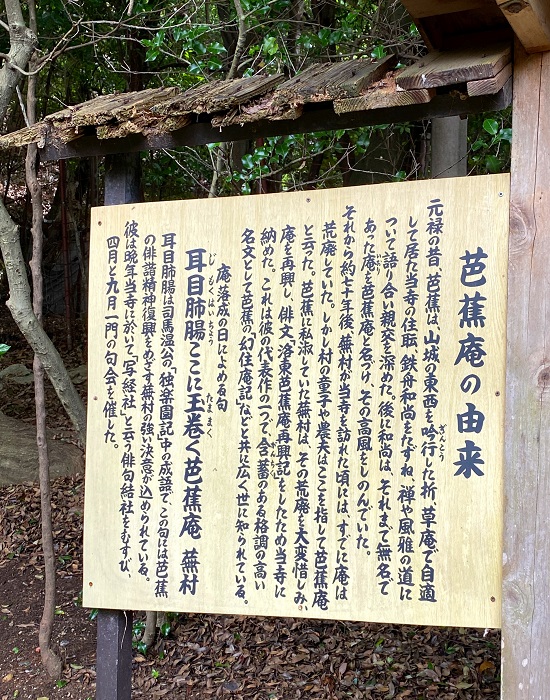 芭蕉庵の由来
元禄の昔、芭蕉は、山城の東西を吟行した折、草庵で自適
ぎんとう
して居た当寺の住職、鉄舟和尚をたずね、禅や風雅の道に
ついて語り合い親交を深めた。後に和尚は、それまで無名で
あった庵を芭蕉庵と名づけ、その高風をしのんでいた。
それから約七十年後、蕪村が当寺を訪れた頃には、すでに庵は
荒廃していた。しかし村の童子や農夫はここを指して芭蕉庵
と云った。芭蕉に私淑していた蕪村は、その荒廃を大変惜しみ、
庵を再興し、俳文「洛東芭蕉庵再興記」をしたため当寺に
納めた。これは彼の代表作の一つで、含蓄のある格調の高い
がんちく
名文として芭蕉の「幻住庵記」などと共に広く世に知られている。
庵落成の日によめる句
耳目肺腸ここに玉巻く芭蕉庵 蕪村
じもくはいちょう たままく
耳目肺腸は司馬温公の「独楽園記」中の成語で、この句には芭蕉
の俳諧精神復興をめざす蕪村の強い決意が込められている。
彼は晩年当寺に於いて「写経社」と云う俳句結社をむすび、
四月と九月一門の句会を催した。